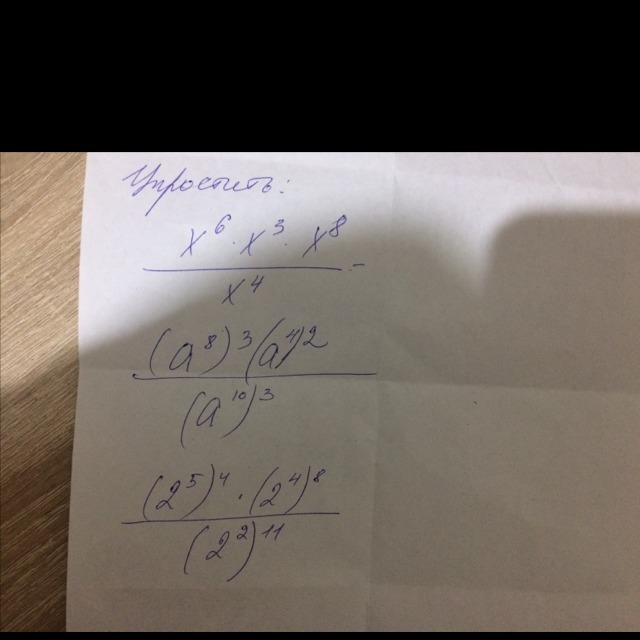 Упростить:
x⁶ · x³ · x⁸ =
x⁴
(a⁸)³(a⁴)²
(a¹⁰)³
(2⁵)⁴ · (2⁴)⁸
(2²)¹¹